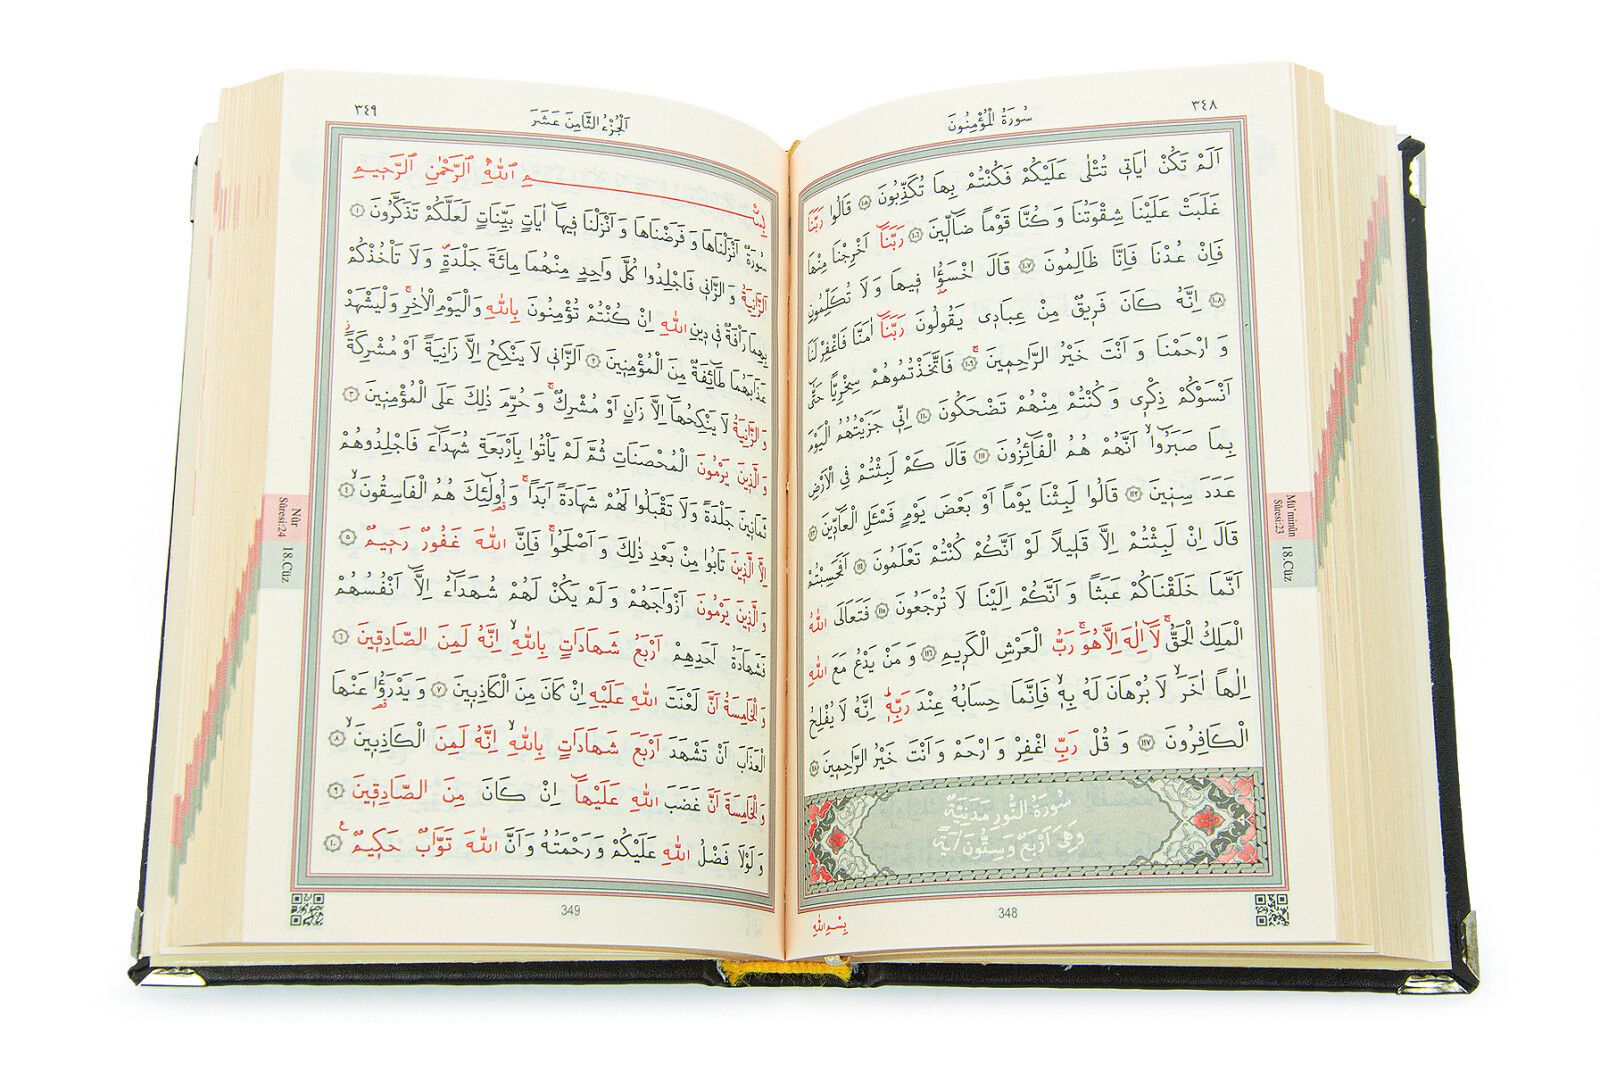 ٣٤٨
سُورَةُ الْمُؤْمِنُونَ
اَلَمْ تَكُنْ اٰيَاتٖي تُتْلٰى عَلَيْكُمْ فَكُنْتُمْ بِهَا تُكَذِّبُونَ ١٠٥ قَالُوا رَبَّنَا
غَلَبَتْ عَلَيْنَا شِقْوَتُنَا وَكُنَّا قَوْمًا ضَٓالّٖينَ ١٠٦ رَبَّنَٓا اَخْرِجْنَا مِنْهَا
فَاِنْ عُدْنَا فَاِنَّا ظَالِمُونَ ١٠٧ قَالَ اخْسَؤُ۫ا فٖيهَا وَلَا تُكَلِّمُونِ
١٠٨ اِنَّهُ كَانَ فَرٖيقٌ مِنْ عِبَادٖي يَقُولُونَ رَبَّنَٓا اٰمَنَّا فَاغْفِرْ لَنَا
وَارْحَمْنَا وَاَنْتَ خَيْرُ الرَّاحِمٖينَۚ ١٠٩ فَاتَّخَذْتُمُوهُمْ سِخْرِيًّا حَتّٰٓى
اَنْسَوْكُمْ ذِكْرٖي وَكُنْتُمْ مِنْهُمْ تَضْحَكُونَ ١١٠ اِنّٖي جَزَيْتُهُمُ الْيَوْمَ
بِمَا صَبَرُٓواۙ اَنَّهُمْ هُمُ الْفَٓائِزُونَ ١١١ قَالَ كَمْ لَبِثْتُمْ فِي الْاَرْضِ
عَدَدَ سِنٖينَ ١١٢ قَالُوا لَبِثْنَا يَوْمًا اَوْ بَعْضَ يَوْمٍ فَسْـَٔلِ الْعَٓادّٖينَ ١١٣
قَالَ اِنْ لَبِثْتُمْ اِلَّا قَلٖيلًا لَوْ اَنَّكُمْ كُنْتُمْ تَعْلَمُونَ ١١٤ اَفَحَسِبْتُمْ
اَنَّمَا خَلَقْنَاكُمْ عَبَثًا وَاَنَّكُمْ اِلَيْنَا لَا تُرْجَعُونَ ١١٥ فَتَعَالَى اللّٰهُ
الْمَلِكُ الْحَقُّۚ لَٓا اِلٰهَ اِلَّا هُوَۚ رَبُّ الْعَرْشِ الْكَرٖيمِ ١١٦ وَمَنْ يَدْعُ مَعَ اللّٰهِ
اِلٰهًا اٰخَرَۙ لَا بُرْهَانَ لَهُ بِهٖۙ فَاِنَّمَا حِسَابُهُ عِنْدَ رَبِّهٖؕ اِنَّهُ لَا يُفْلِحُ
الْكَافِرُونَ ١١٧ وَقُلْ رَبِّ اغْفِرْ وَارْحَمْ وَاَنْتَ خَيْرُ الرَّاحِمٖينَ ١١٨
سُورَةُ النُّورِ مَدَنِيَّةٌ
وَهِيَ اَرْبَعٌ وَسِتُّونَ اٰيَةً
بِسْمِ اللّٰهِ
348
Mü'minûn
Sûresi:23
18.Cüz
٣٤٩
اَلْجُزْءُ الثَّامِنَ عَشَرَ
بِسْمِ اللّٰهِ الرَّحْمٰنِ الرَّحٖيمِ
سُورَةٌ اَنْزَلْنَاهَا وَفَرَضْنَاهَا وَاَنْزَلْنَا فٖيهَٓا اٰيَاتٍ بَيِّنَاتٍ لَعَلَّكُمْ تَذَكَّرُونَ ١
اَلزَّانِيَةُ وَالزَّانٖي فَاجْلِدُوا كُلَّ وَاحِدٍ مِنْهُمَا مِائَةَ جَلْدَةٍ وَلَا تَأْخُذْكُمْ
بِهِمَا رَأْفَةٌ فٖي دٖينِ اللّٰهِ اِنْ كُنْتُمْ تُؤْمِنُونَ بِاللّٰهِ وَالْيَوْمِ الْاٰخِرِۚ وَلْيَشْهَدْ
عَذَابَهُمَا طَٓائِفَةٌ مِنَ الْمُؤْمِنٖينَ ٢ اَلزَّانٖي لَا يَنْكِحُ اِلَّا زَانِيَةً اَوْ مُشْرِكَةًؗ
وَالزَّانِيَةُ لَا يَنْكِحُهَٓا اِلَّا زَانٍ اَوْ مُشْرِكٌۚ وَحُرِّمَ ذٰلِكَ عَلَى الْمُؤْمِنٖينَ ٣
وَالَّذٖينَ يَرْمُونَ الْمُحْصَنَاتِ ثُمَّ لَمْ يَأْتُوا بِاَرْبَعَةِ شُهَدَٓاءَ فَاجْلِدُوهُمْ
ثَمَانٖينَ جَلْدَةً وَلَا تَقْبَلُوا لَهُمْ شَهَادَةً اَبَدًاۚ وَاُو۬لٰٓئِكَ هُمُ الْفَاسِقُونَۙ ٤
اِلَّا الَّذٖينَ تَابُوا مِنْ بَعْدِ ذٰلِكَ وَاَصْلَحُواۚ فَاِنَّ اللّٰهَ غَفُورٌ رَحٖيمٌ ٥
وَالَّذٖينَ يَرْمُونَ اَزْوَاجَهُمْ وَلَمْ يَكُنْ لَهُمْ شُهَدَٓاءُ اِلَّٓا اَنْفُسُهُمْ
فَشَهَادَةُ اَحَدِهِمْ اَرْبَعُ شَهَادَاتٍ بِاللّٰهِۙ اِنَّهُ لَمِنَ الصَّادِقٖينَ ٦
وَالْخَامِسَةُ اَنَّ لَعْنَتَ اللّٰهِ عَلَيْهِ اِنْ كَانَ مِنَ الْكَاذِبٖينَ ٧ وَيَدْرَؤُ۬ا عَنْهَا
الْعَذَابَ اَنْ تَشْهَدَ اَرْبَعَ شَهَادَاتٍ بِاللّٰهِۙ اِنَّهُ لَمِنَ الْكَاذِبٖينَۙ ٨
وَالْخَامِسَةَ اَنَّ غَضَبَ اللّٰهِ عَلَيْهَٓا اِنْ كَانَ مِنَ الصَّادِقٖينَ ٩
وَلَوْلَا فَضْلُ اللّٰهِ عَلَيْكُمْ وَرَحْمَتُهُ وَاَنَّ اللّٰهَ تَوَّابٌ حَكٖيمٌ ١٠
349
Nûr
Sûresi:24
18.Cüz